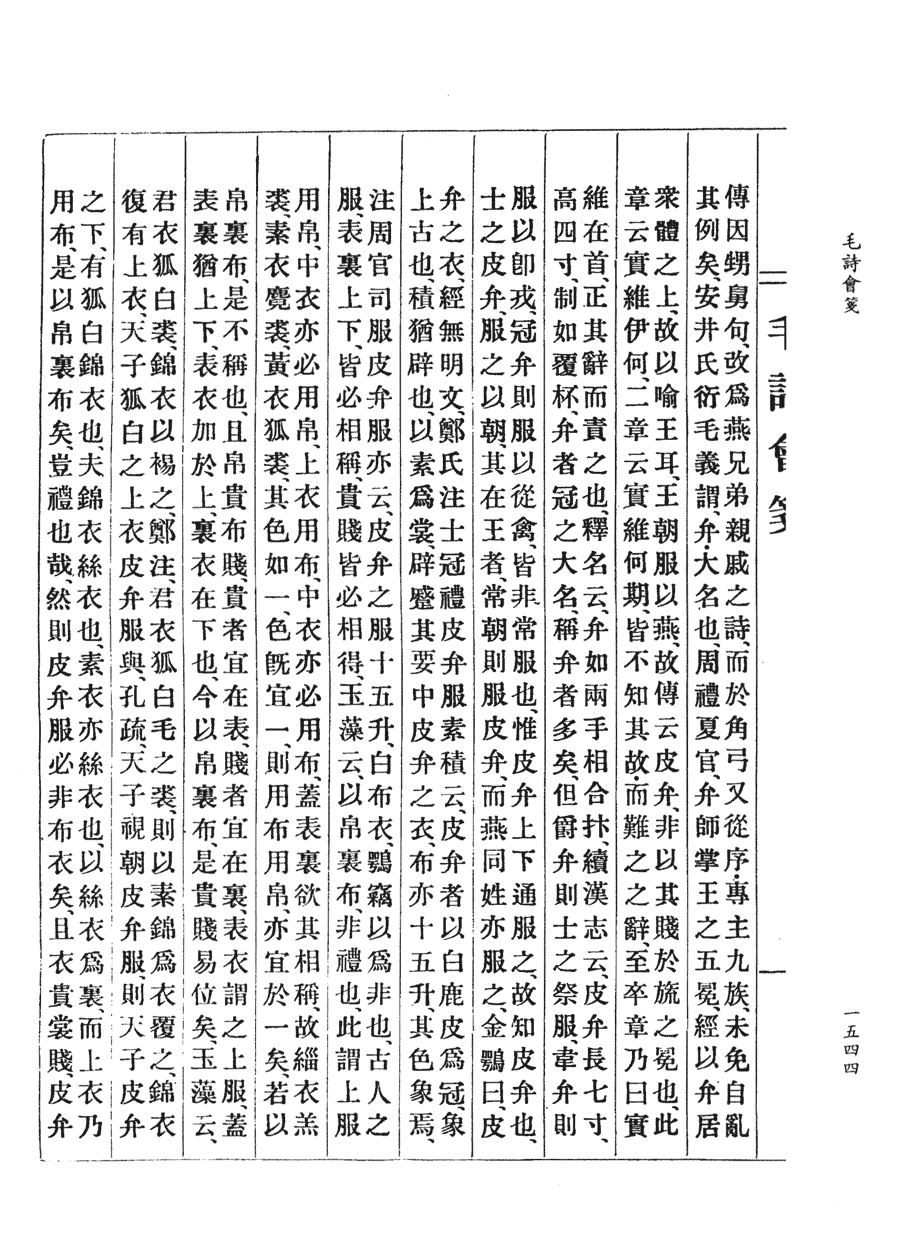 毛詩會箋
一五四四
毛詩會箋
傳因甥舅句、改爲燕兄弟親戚之詩、而於角弓又從序、專主九族、未免自亂
其例矣、安井氏衍毛義謂、弁、大名也、周禮夏官、弁師掌王之五冕、經以弁居
衆體之上、故以喻王耳、王朝服以燕、故傳云皮弁、非以其賤於旒之冕也、此
章云實維伊何、二章云實維何期、皆不知其故、而難之之辭、至卒章乃曰實
維在首、正其辭而責之也、釋名云、弁如兩手相合抃、續漢志云、皮弁長七寸、
高四寸、制如覆杯、弁者冠之大名、稱弁者多矣、但爵弁則士之祭服、韋弁則
服以卽戎、冠弁則服以從禽、皆非常服也、惟皮弁上下通服之、故知皮弁也、
士之皮弁、服之以朝、其在王者、常朝則服皮弁、而燕同姓亦服之、金鶚曰、皮
弁之衣、經無明文、鄭氏注士冠禮皮弁服素積云、皮弁者以白鹿皮爲冠、象
上古也、積猶辟也、以素爲裳、辟蹙其要中皮弁之衣、布亦十五升、其色象焉、
注周官司服皮弁服亦云、皮弁之服十五升、白布衣、鶚竊以爲非也、古人之
服、表裏上下、皆必相稱、貴賤皆必相得、玉藻云、以帛裏布、非禮也、此謂上服
用帛、中衣亦必用帛、上衣用布、中衣亦必用布、蓋表裏欲其相稱、故緇衣羔
裘、素衣麑裘、黃衣狐裘、其色如一、色旣宜一、則用布用帛、亦宜於一矣、若以
帛裏布、是不稱也、且帛貴布賤、貴者宜在表、賤者宜在裏、表衣謂之上服、蓋
表裏猶上下、表衣加於上、裏衣在下也、今以帛裏布、是貴賤易位矣、玉藻云、
君衣狐白裘、錦衣以裼之、鄭注、君衣狐白毛之裘、則以素錦爲衣覆之、錦衣
復有上衣、天子狐白之上衣皮弁服與、孔疏、天子視朝皮弁服、則天子皮弁
之下、有狐白錦衣也、夫錦衣絲衣也、素衣亦絲衣也、以絲衣爲裏、而上衣乃
用布、是以帛裏布矣、豈禮也哉、然則皮弁服必非布衣矣、且衣貴裳賤、皮弁